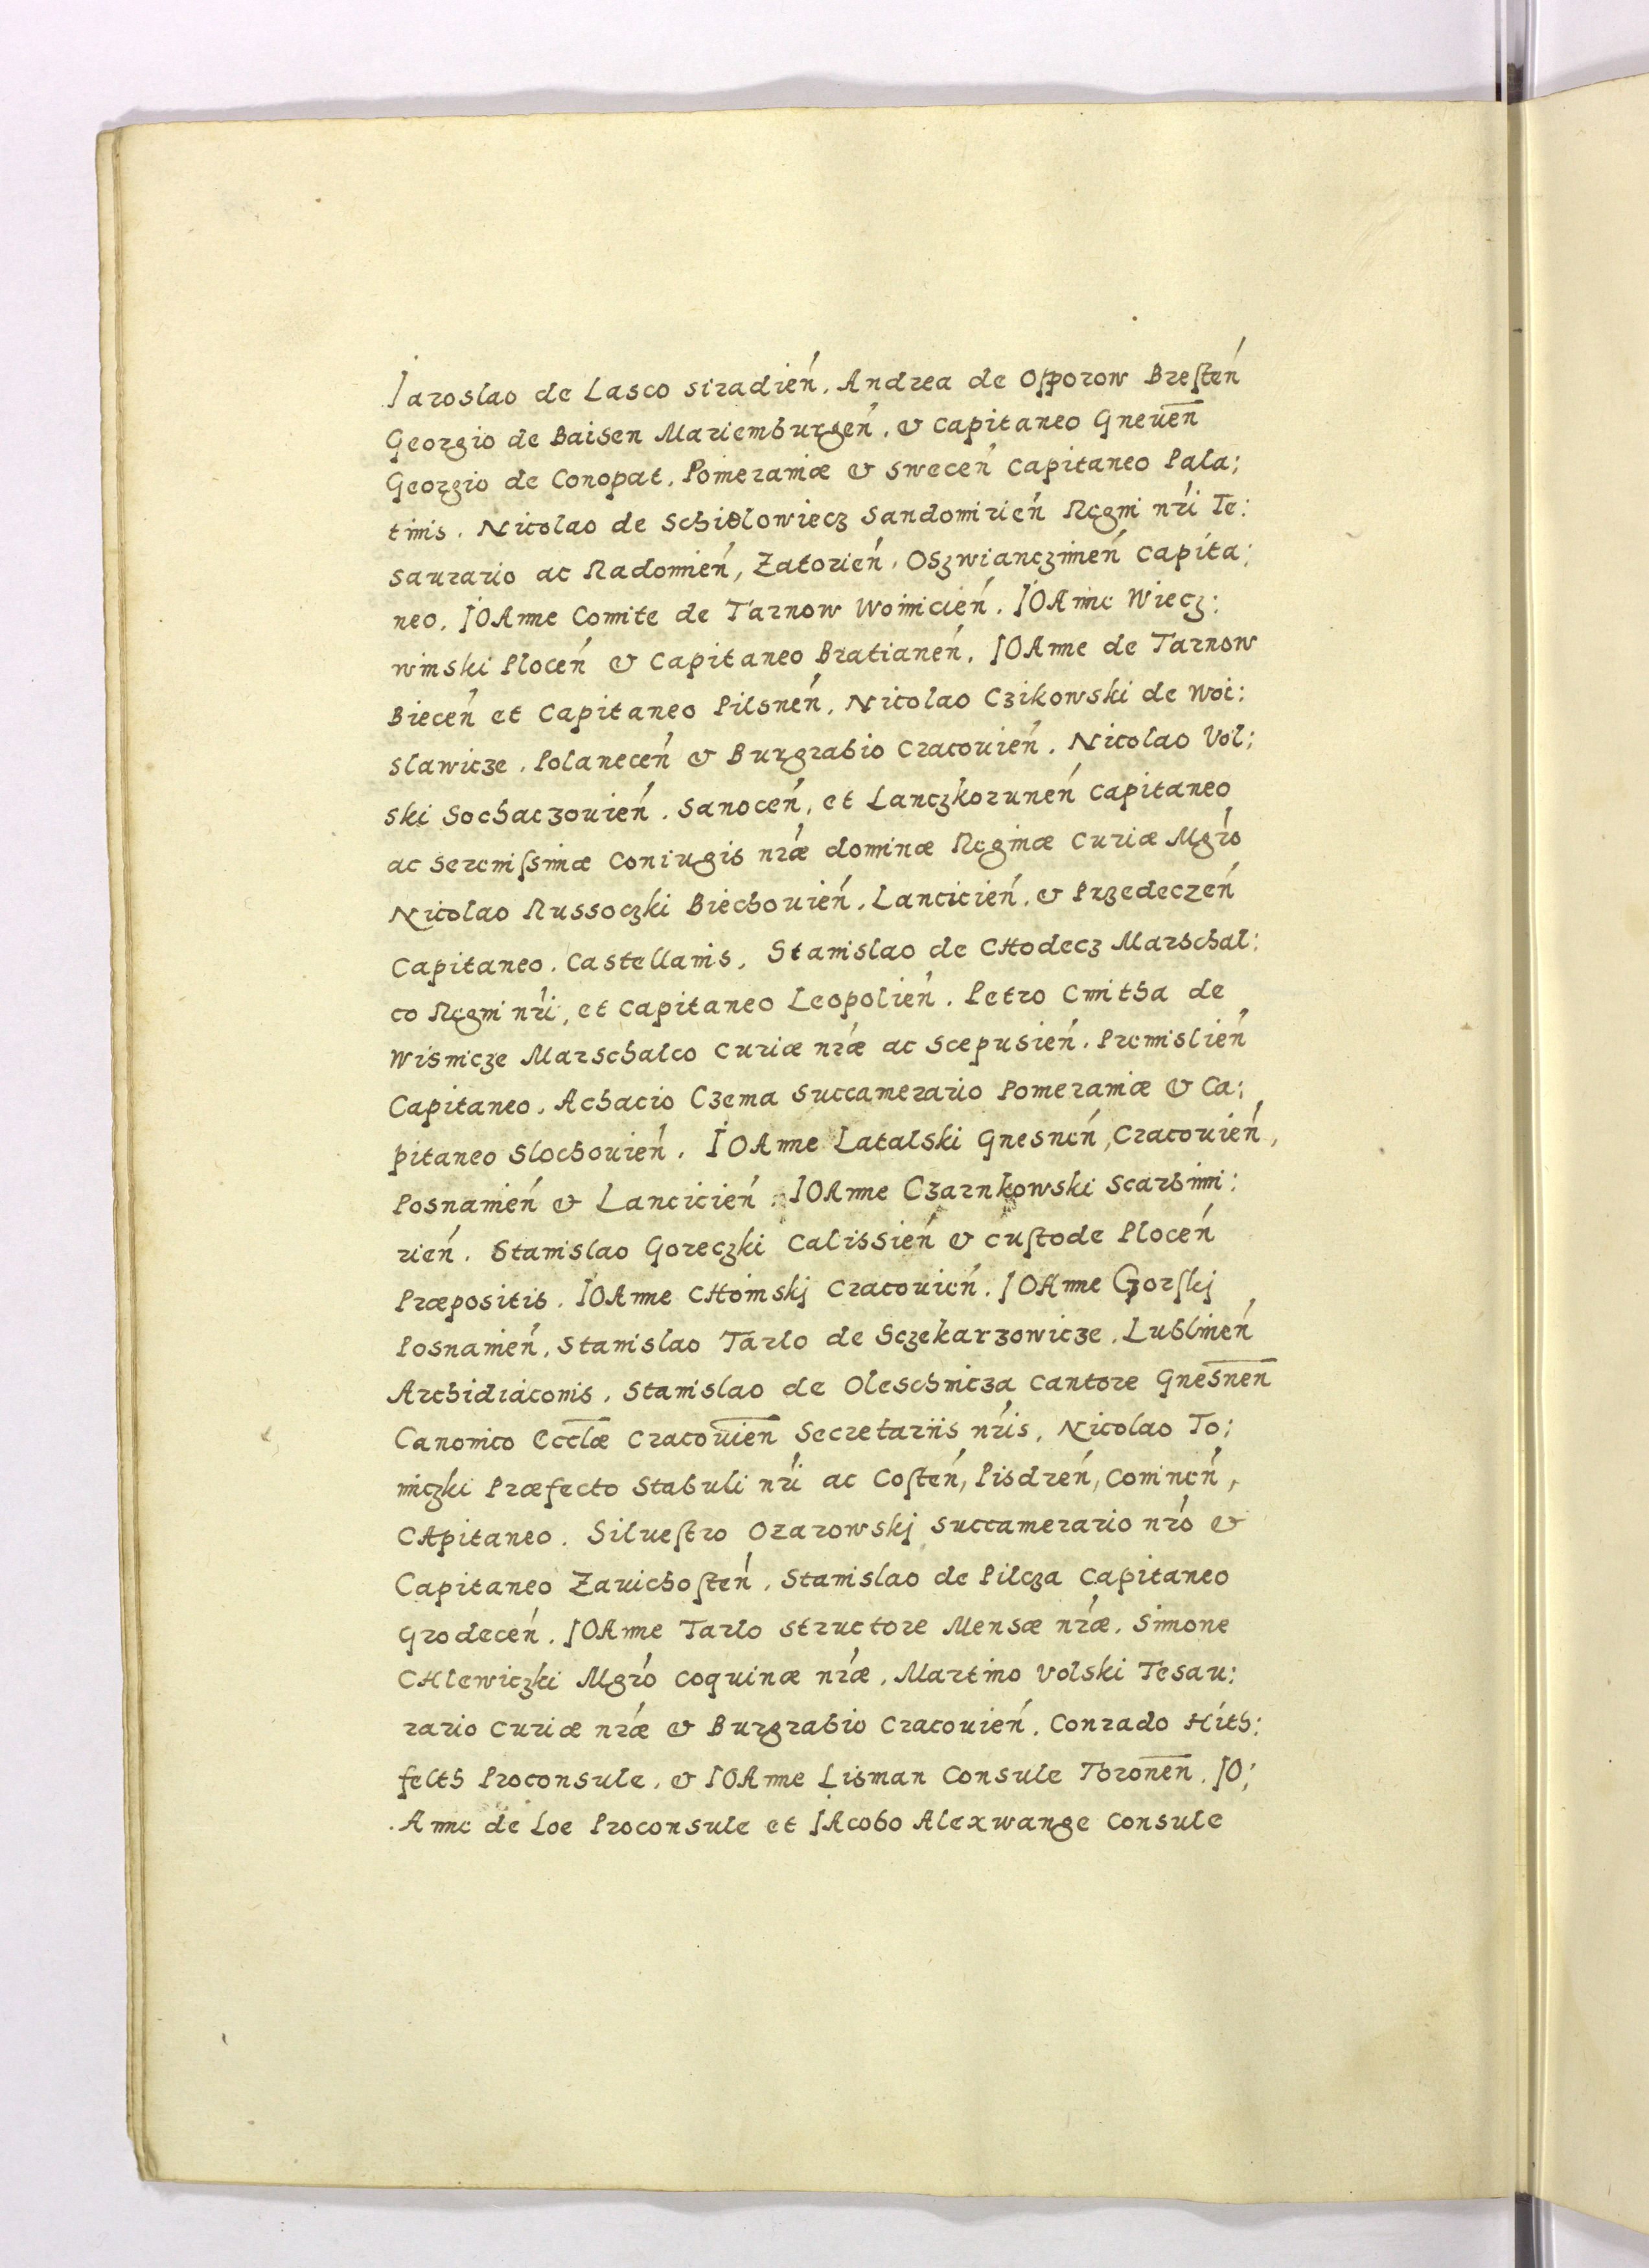 Iaroslao de Lasco siradień. Andrea de Opporow Bresteń
Georgio de Baisen Mariemburgeń. & Capitaneo Gneueñ
Georgio de Conopat. Pomeraniæ & sweceń Capitaneo Pala;
tinis. Nicolao de Schidlowiecz Sandomirień Regni nŕi Te:
saurario ac Radomień, Zatorień. Oszwiancziмeń Capita;
neo. IOAnne Comite de Tarnow Woinicień. IOAnne Wiecz:
winski Ploceń & Capitaneo Bratianeń. IOAnne de Tarnow
Bieceń et Capitaneo Pilsneń. Nicolao Czikowski de Woi:
slawicze. Polaneceń & Burgrabio Cracouień. Nicolao Vol;
ski Sochaczouień. Sanoceń, et Lanczkoruneń Capitaneo
ac Serenissimæ Coniugis nŕæ dominæ Reginæ Curiæ Mgŕo
Nicolao Russoczki Biechouień. Lancicień. & Przedeczeń
Capitaneo. Castellanis. Stanislao de CHodecz Marschal:
co Regni nŕi, et Capitaneo Leopolień. Petro Cmitha de
Wisnicze Marschalco Curiæ nŕæ ac Scepusień. Premislień
Capitaneo. Achacio Czema Succamerario Pomeraniæ & Ca;
pitaneo Slochouień. IOAnne Latalski Gnesneń, Cracouień,
Posnanień & Lancicień. IOAnne Czarnkowski Scarbimi:
rień. Stanislao Goreczki Calissień & custode Ploceń
Præpositis. IOAnne CHoinskj Cracouień. IOAnne Gorskj
Posnanień. Stanislao Tarlo de Sczekarzowicze. Lublineń
Archidiaconis. Stanislao de Oleschnicza Cantore Gnesneñ
Canonico Ecclæ Cracouień Secretariis nŕis. Nicolao To;
miczki Præfecto Stabuli nŕi ac Costeń, Pisdreń, Comineń,
CApitaneo. Siluestro Ozarowskj Succamerario nŕo &
Capitaneo Zauichosteń. Stanislao de Pilcza Capitaneo
Grodeceń. IOAnne Tarlo Structore Mensæ nŕæ. Simone
CHlewiczki Mgŕo Coquinæ nŕæ. Martino Volski Tesau:
rario Curiæ nŕæ & Burgrabio Cracouień. Conrado Hith:
felth Proconsule. & IOAnne Lisman Consule Thoroneñ. IO;
Anne de Loe Proconsule et IAcobo Alexwange Consule